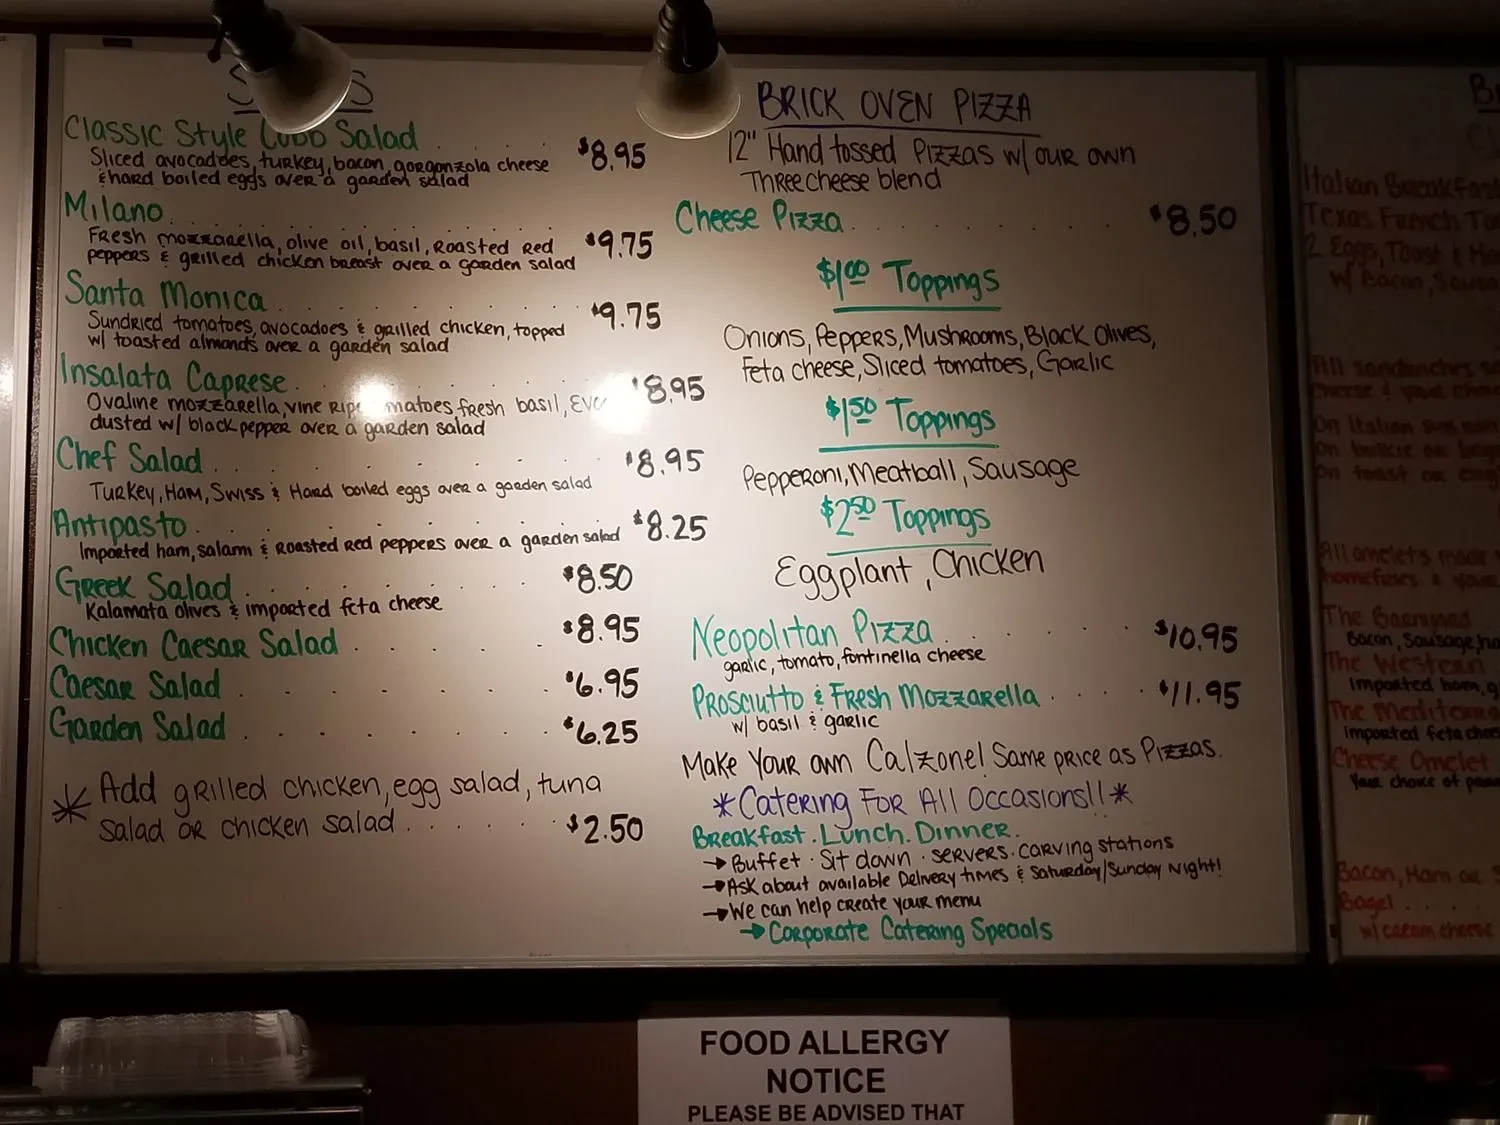 Classic Style Cobb Salad $8.95
Sliced avocadoes, turkey, bacon, gorgonzola cheese
& hard boiled eggs over a garden salad
Milano $9.75
Fresh mozzarella, olive oil, basil, Roasted Red
peppers & grilled chicken breast over a garden salad
Santa Monica $9.75
Sundried tomatoes, avocadoes & grilled chicken, topped
w/ toasted almonds over a garden salad
Insalata Caprese $8.95
Ovaline mozzarella, vine ripe tomatoes fresh basil, EVO
dusted w/ black pepper over a garden salad
Chef Salad $8.95
Turkey, Ham, Swiss & Hard boiled eggs over a garden salad
Antipasto $8.25
Imported ham, salami & Roasted Red peppers over a garden salad
Greek Salad $8.50
Kalamata olives & imported feta cheese
Chicken Caesar Salad $8.95
Caesar Salad $6.95
Garden Salad $6.25
* Add grilled chicken, egg salad, tuna
salad or chicken salad $2.50
BRICK OVEN PIZZA
12" Hand tossed Pizzas w/ our own
Three cheese blend
Cheese Pizza $8.50
$1.00 Toppings
Onions, Peppers, Mushrooms, Black Olives,
Feta cheese, Sliced tomatoes, Garlic
$1.50 Toppings
Pepperoni, Meatball, Sausage
$2.50 Toppings
Eggplant, Chicken
Neopolitan Pizza $10.95
garlic, tomato, fontinella cheese
Prosciutto & Fresh Mozzarella $11.95
w/ basil & garlic
Make Your own Calzone! Same price as Pizzas.
*Catering For All Occasions!!*
Breakfast. Lunch. Dinner.
→ Buffet · Sit down · servers · carving stations
→ Ask about available Delivery times & Saturday/Sunday Night!
→ We can help create your menu
→ Corporate Catering Specials
Italian Breakfast
Texas French To
2 Eggs, Toast & Ho
w/ Bacon, Sausa
All sandwiches
cheese & your
On Italian
On bulkie or
On toast or
All omelets made
homefries & your
The Barnyard
Bacon, Sausage, ha
The Western
Imported ham, g
The Mediterra
Imported feta chee
Cheese Omelet
Your choice of
Bacon, Ham or S
Bagel
w/ cream cheese
FOOD ALLERGY
NOTICE
PLEASE BE ADVISED THAT